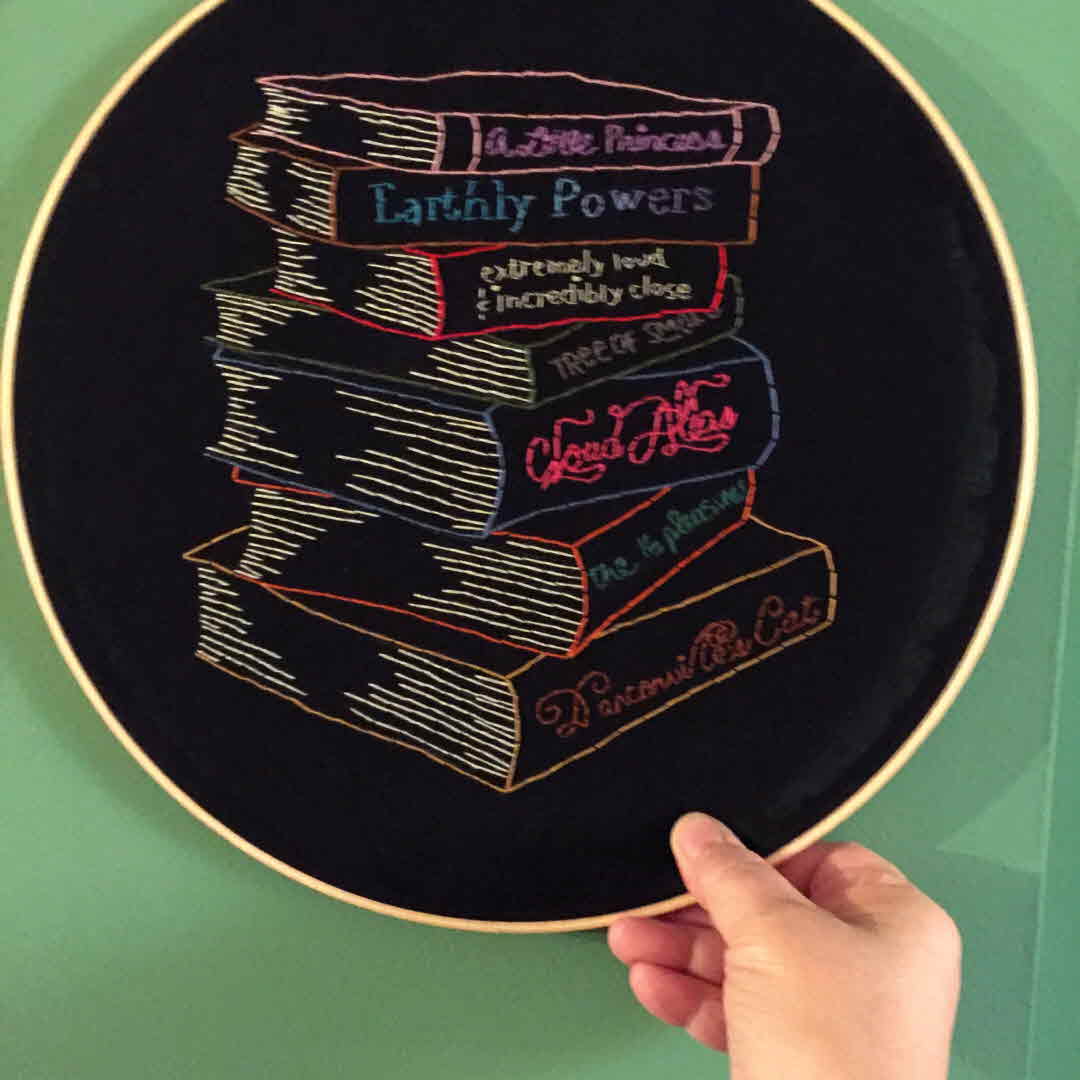 a Little Princess
Earthly Powers
extremely loud
& incredibly close
TREE OF SMOKE
Cloud Atlas
the 16 pleasures
Darconville's Cat